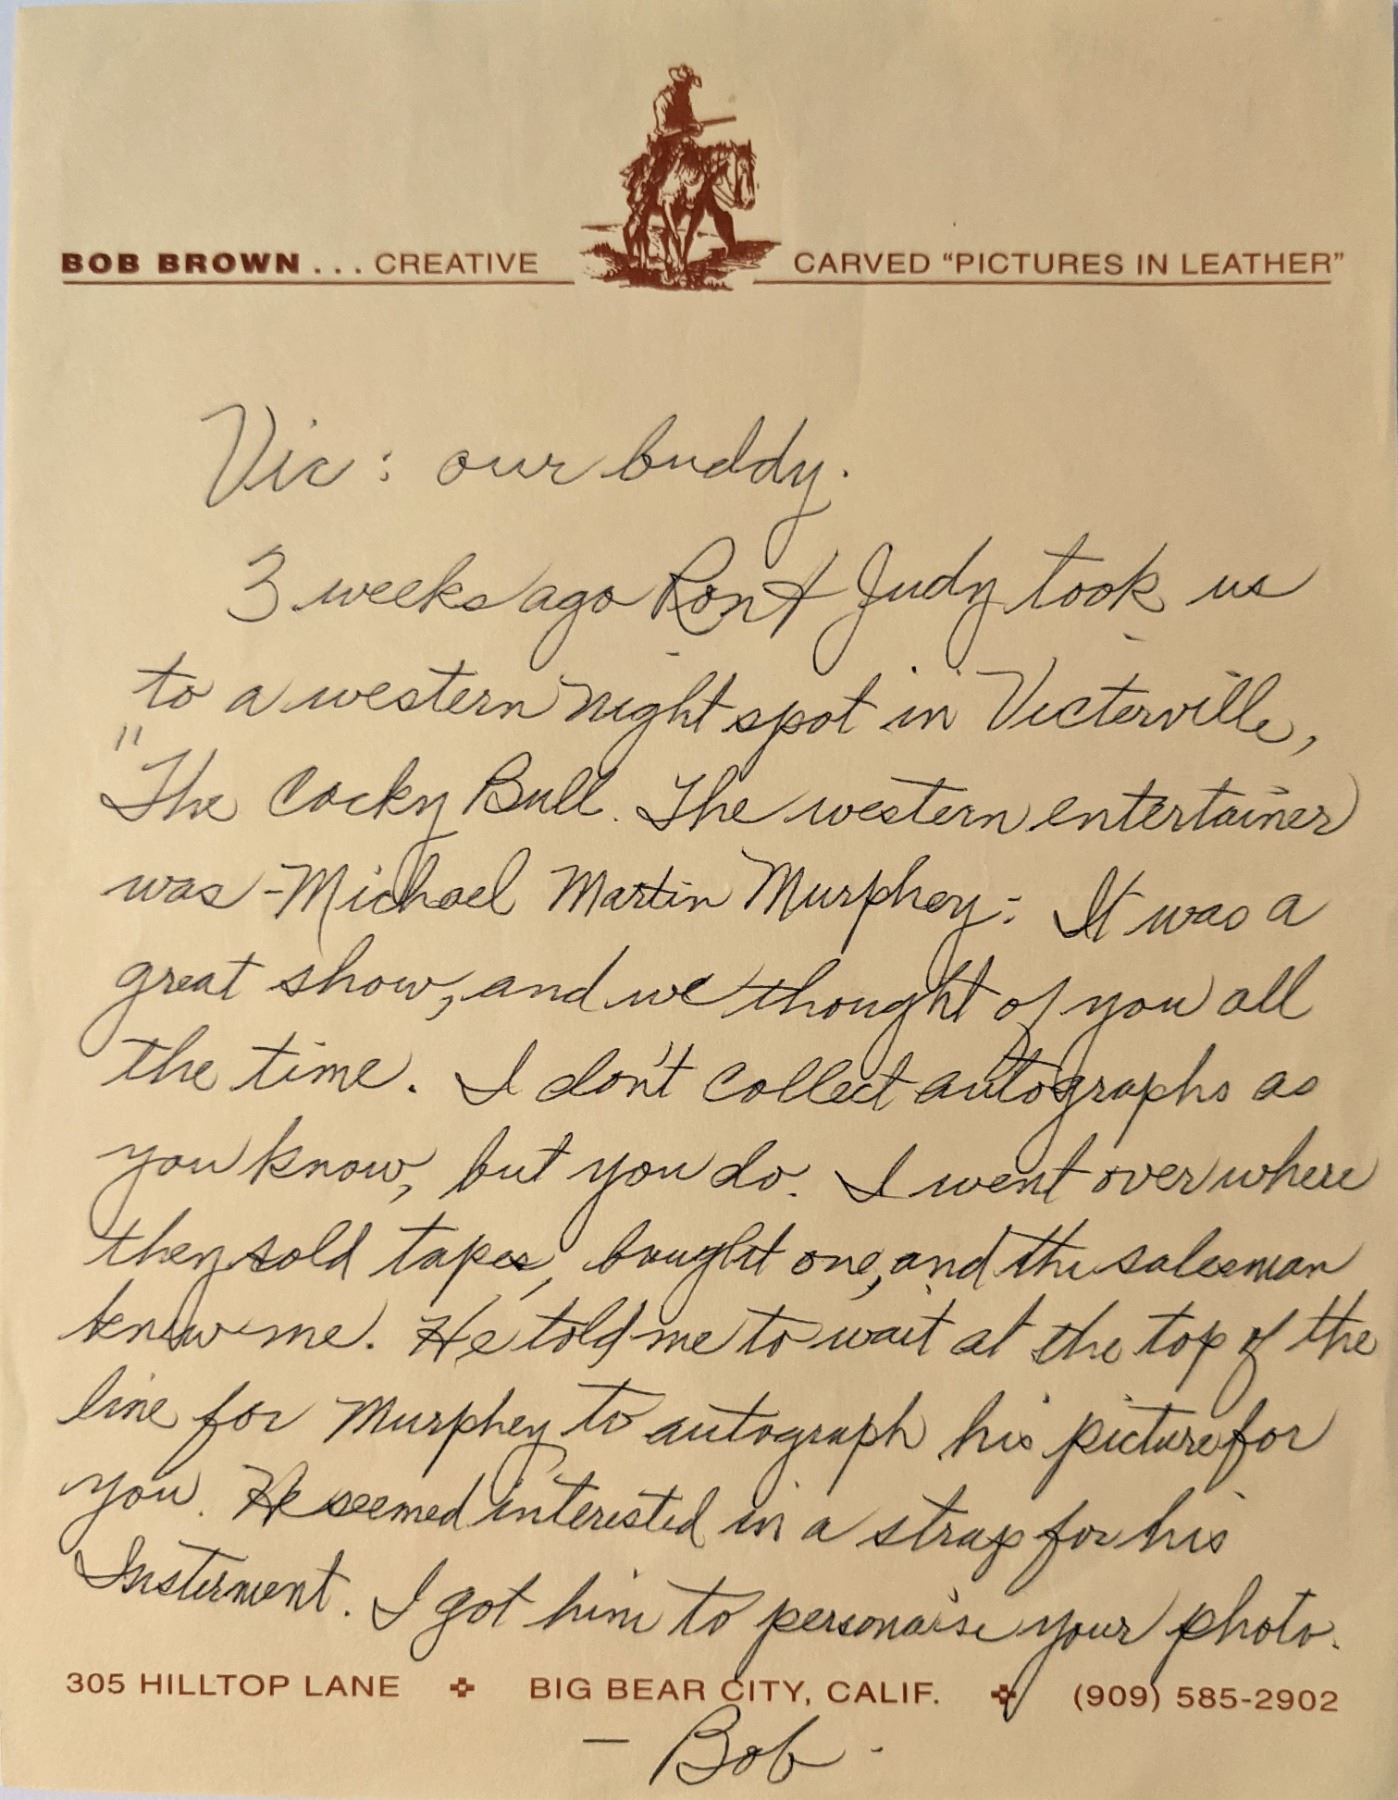 BOB BROWN ... CREATIVE CARVED "PICTURES IN LEATHER"
Vic: our buddy.
3 weeks ago Ron & Judy took us
to a western night spot in Victerville,
"The Cocky Bull. The western entertainer
was - Michael Martin Murphey: It was a
great show, and we thought of you all
the time. I don't collect autographs as
you know, but you do. I went over where
they sold tapes, bought one, and the salesman
knew me. He told me to wait at the top of the
line for Murphey to autograph his picture for
you. He seemed interested in a strap for his
Insterment. I got him to personaise your photo.
305 HILLTOP LANE BIG BEAR CITY, CALIF. (909) 585-2902
- Bob -